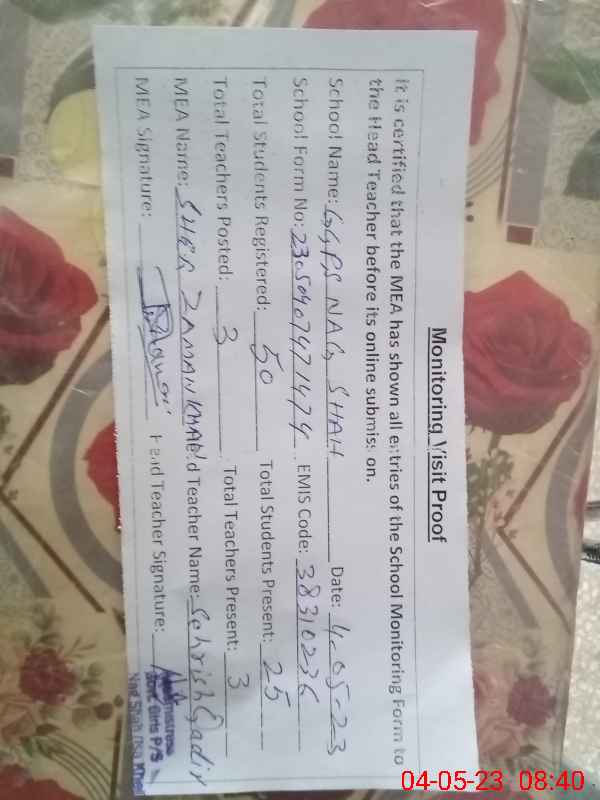 Monitoring Visit Proof
It is certified that the MEA has shown all entries of the School Monitoring Form to
the Head Teacher before its online submission.
School Name: GGPS NAG SHAH Date: 4-05-23
School Form No: 23050407471474 EMIS Code: 38310236
Total Students Registered: 50 Total Students Present: 25
Total Teachers Posted: 3 Total Teachers Present: 3
MEA Name: SHER ZAMAN KHAN d Teacher Name: Sehrish Qadir
MEA Signature: Head Teacher Signature:
Headmistress
Govt Girls P/S
Nag Shah
04-05-23 08:40